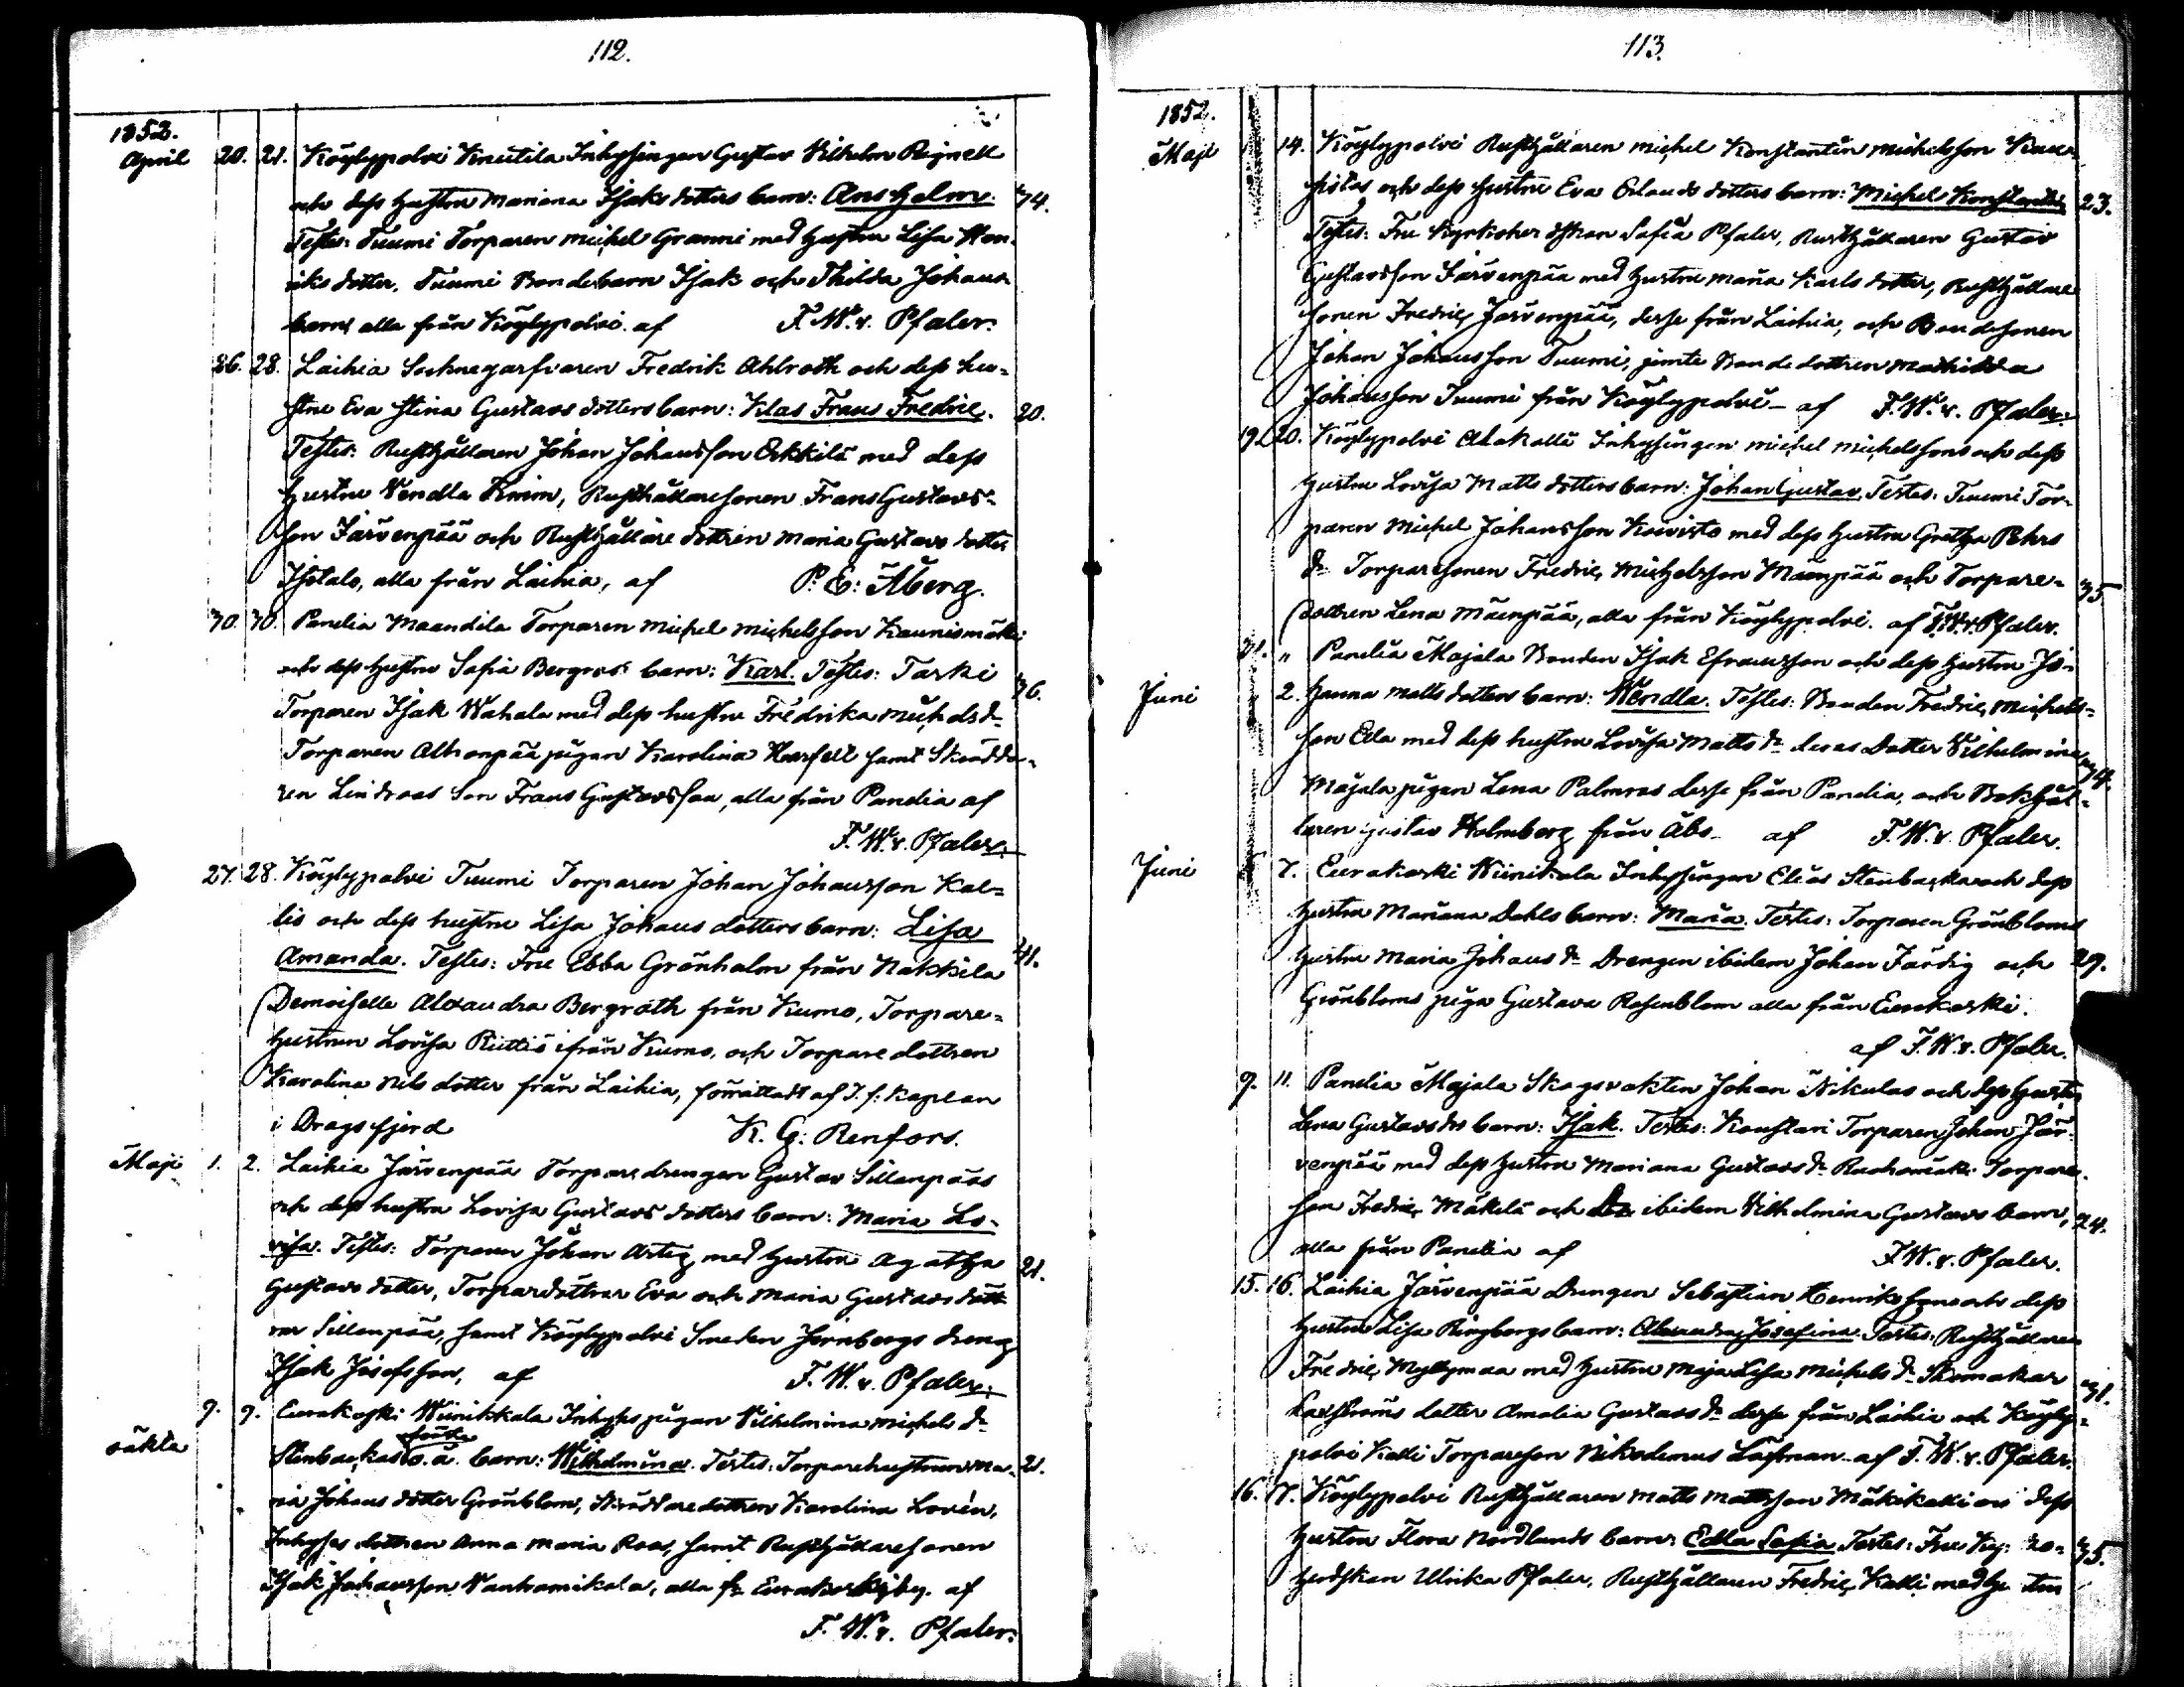 112.
1852.
April 20. 21. Köylypolvi Knutila Inhysingen Gustav Vilhelm Regnell
och dess hustru Mariana Isaksdotters barn: Anshelm. 34.
Testes: Tuumi Torparen Michel Granni med hustru Lisa Hen-
riksdotter, Tuumi Bondebarn Isak och Thilda Johans
barn, alla från Köylypolvi. af F. W. v. Pfaler.
26. 28. Laihia Socknegarfvaren Fredrik Ahlroth och dess hu-
stru Eva Stina Gustavsdotters barn: Klas Frans Fredric. 20.
Testes: Rusthållaren Johan Johansson Erkkilä med dess
hustru Vendla Krim, Rusthållaresonen Frans Gustavs-
son Järvenpää och Rusthållaredottren Maria Gustavsdotter
Isotalo, alla från Laihia, af P. E: Åberg.
30. 30. Panelia Maandila Torparen Michel Michelsson Kaunismäki
och dess hustru Safia Bergros' barn: Karl. Testes: Tarki 36.
Torparen Isak Wahala med dess hustru Fredrika Michelsd:r
Torparen Alhonpää pigan Karolina samt Skrädda-
ren Lindroos Son Frans Gustavsson, alla från Panelia af
F. W. v. Pfaler.
27. 28. Köylypolvi Tuumi Torparen Johan Johansson Kal-
lio och dess hustru Lisa Johansdotters barn: Lisa
Amanda. Testes: Fru Ebba Grönholm från Nakkila 41.
Demoiselle Alexandra Bergroth från Kumo, Torpare-
hustrun Lovisa ifrån Kumo, och Torparedottren
Karolina Nilsdotter från Laihia, förrättadt af T. f. Kaplan
i Dragsfjerd K. G: Renfors.
Maji 1. 2. Laihia Järvenpää Torparedrengen Gustav Sillanpääs
och dess hustru Lovisa Gustavsdotters barn: Maria Lo-
visa. Testes: Torparen Johan Arteg med hustru Agatha 21.
Gustavsdotter, Torpardöttrar Eva och Maria Gustavsdött-
rar Sillanpää, samt Köylypolvi Smeden Jernbergs dreng
Isak Josefsson, af F. W. v. Pfaler.
9. 9. Eurakoski Wiinikkala Inhyses pigan Vilhelmina Michels d:r
oäkta Stenbackas o. ä. barn: Wilhelmina. Testes: Torparehustrun Ma- 21.
ria Johansdotter Grönblom, Skräddaredottren Karolina Lovén,
Inhyses dottren Anna Maria Roos, samt Rusthållaresonen
Isak Johansson Vanhamikola, alla fr. Eurakoski by. af
F. W. v. Pfaler.
113.
1852.
Maji 14. Köylypolvi Rusthållaren Michel Konstantin Michelsson
och dess hustru Eva Erlandsdotters barn: Michel Konstantin 23.
Testes: Fru Kyrkoherdskan Safia Pfaler, Rusthållaren Gustav
Gustavsson Järvenpää med hustru Maria Karlsdotter, Rusthållare
sonen Fredric Järvenpää, desse från Laihia, och Bondesonen
Johan Johansson Tuumi, jemte Bondedottren Mathilda
Johansson Tuumi från Köylypolvi - af F. W. v. Pfaler.
19. 20. Köylypolvi Alakalli Inhysingen Michel Michelssons och dess
hustru Lovisa Mattsdotters barn: Johan Gustav. Testes: Tuumi Tor-
paren Michel Johansson Koivisto med dess hustru Gretha Pehrs
d:r Torparesonen Fredric Michelsson Mäenpää och Torpare- 35
dottren Lena Mäenpää, alla från Köylypolvi. af F. W. v. Pfaler.
31. " Panelia Majala Bonden Isak Efraimsson och dess hustru Jo-
Juni 2. hanna Mattsdotters barn: Wendla. Testes: Bonden Fredric Michels-
son Eela med dess hustru Lovisa Matts d:r deras Dotter Vilhelmina 34.
Majala pigan Lena Palmros desse från Panelia, och Bokhål-
laren Gustav Holmberg från Åbo - af F. W. v. Pfaler.
Juni 7. Eurakoski Wiinikala Inhysingen Elias Stenbacka och dess
hustru Mariana Dahls barn: Maria. Testes: Torparen Grönbloms
hustru Maria Johans d:r Drengen ibidem Johan Färdig och 29.
Grönbloms piga Gustava Rosenblom alla från Eurakoski.
af F. W. v. Pfaler.
9. 11. Panelia Majala Skogsvakten Johan Nikulas och dess hustru
Lena Gustavsdrs barn: Isak. Testes: Konstari Torparen Johan Jär-
venpää med dess hustru Mariana Gustavs d:r Torpare
son Fredric Mäkelä och ibidem Vilhelmina Gustavs barn, 24.
alla från Panelia af F. W. v. Pfaler.
15. 16. Laihia Järvenpää Drengen Sebastian Henrikssons och dess
hustru Lisa Ringbergs barn: Alexandra Josefina. Testes: Rusthållaren
Fredric Myllymaa med hustru Maja Lisa Michels d:r Skomakar 31.
Laxströms dotter Amalia Gustavs d:r desse från Laihia och Köyly-
polvi Kalli Torpareson Nikodemus Löfman. af F. W. v. Pfaler.
16. 17. Köylypolvi Rusthållaren Matts Mattsson Mäkikalli och dess
hustru Flora Nordlunds barn: Edla Safia. Testes: Fru Ky- ko- 35.
herdskan Ulrika Pfaler, Rusthållaren Fredric Kalli med hustru